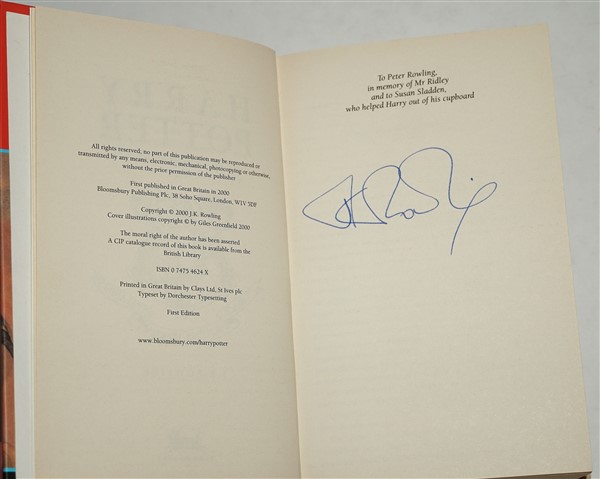 All rights reserved; no part of this publication may be reproduced or
transmitted by any means, electronic, mechanical, photocopying or otherwise,
without the prior permission of the publisher
First published in Great Britain in 2000
Bloomsbury Publishing Plc, 38 Soho Square, London, W1V 5DF
Copyright © 2000 J.K. Rowling
Cover illustrations copyright © by Giles Greenfield 2000
The moral right of the author has been asserted
A CIP catalogue record of this book is available from the
British Library
ISBN 0 7475 4624 X
Printed in Great Britain by Clays Ltd, St Ives plc
Typeset by Dorchester Typesetting
First Edition
www.bloomsbury.com/harrypotter
To Peter Rowling,
in memory of Mr Ridley
and to Susan Sladden,
who helped Harry out of his cupboard